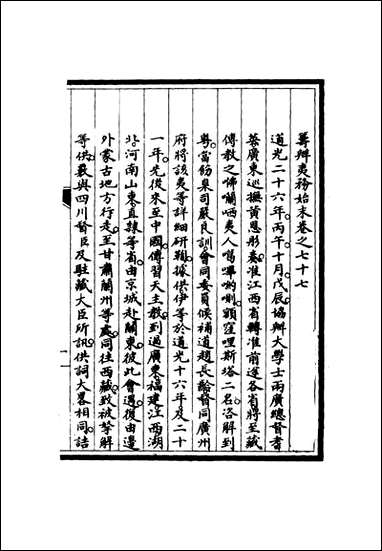 籌辦夷務始末卷之七十七
道光二十六年。丙午。十月。戊辰。協辦大學士兩廣總督耆
英廣東巡撫黃恩彤奏。准江西省轉准前途各省將至藏
傳教之佛囒哂夷人噶嗶喲唎額窪哩斯塔二名。咨解到
粵。當飭臬司嚴良訓會同委員候補道趙長齡督同廣州
府將該夷等詳細研鞫。據供伊等於道光十六年及二十
一年。先後來至中國。傳習天主教。到過廣東福建江西湖
北河南山東直隸等省。由京城赴關東。彼此會遇。復由邊
外蒙古地方行走。至甘肅蘭州等處。同往西藏。致被拏解
等供。覈與四川督臣及駐藏大臣所訊供詞大畧相同。詰
一